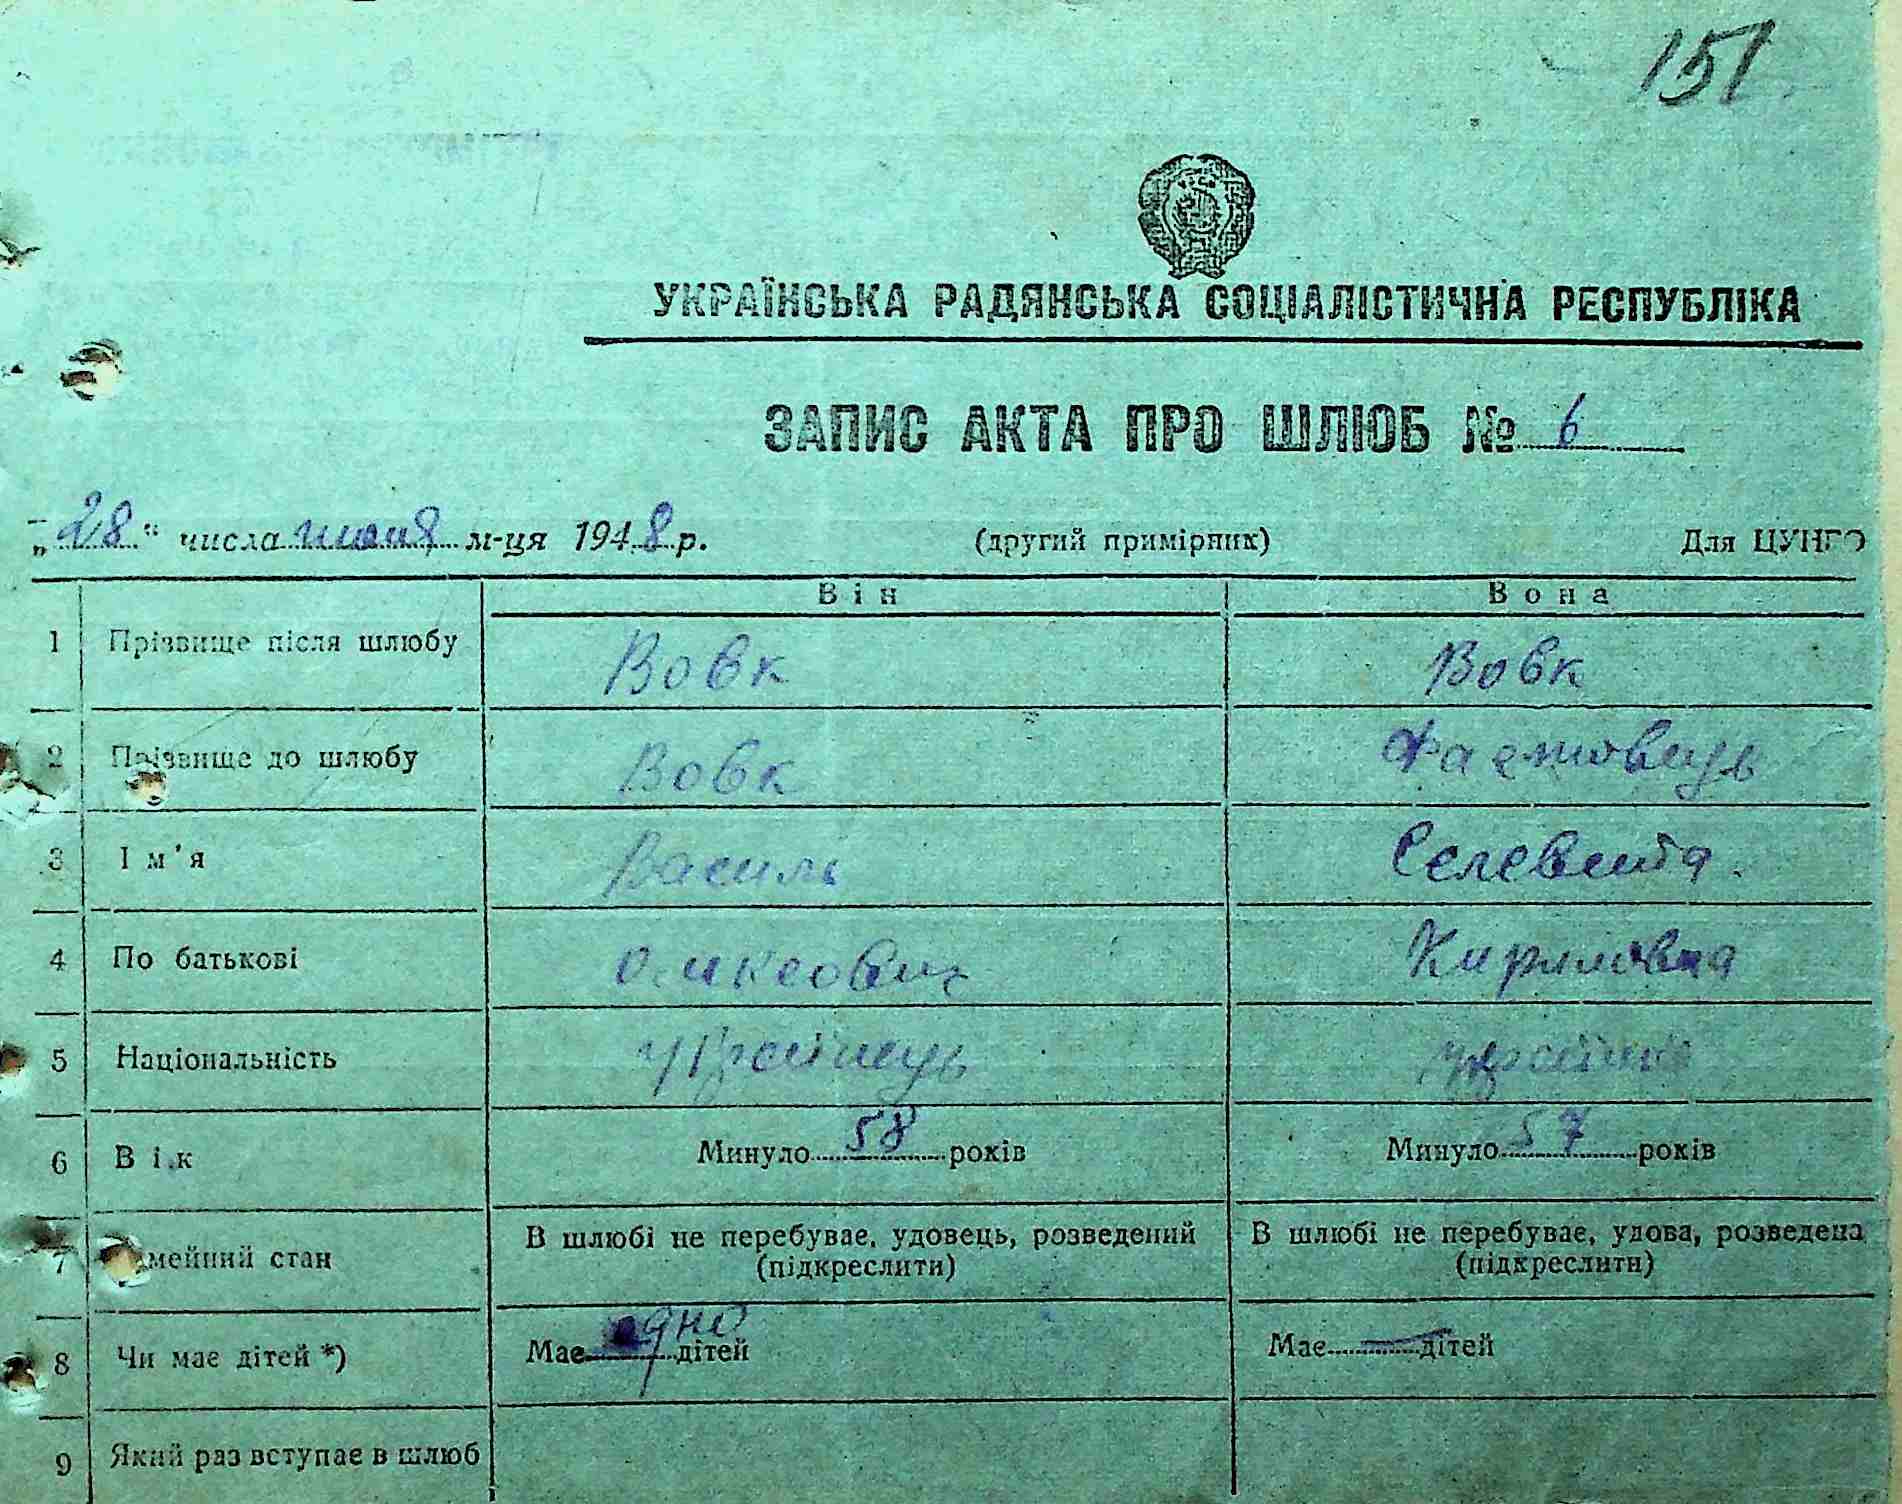 151
УКРАЇНСЬКА РАДЯНСЬКА СОЦІАЛІСТИЧНА РЕСПУБЛІКА
ЗАПИС АКТА ПРО ШЛЮБ № 6
„28“ числа м-ця 1948 р. (другий примірник) Для ЦУНГО
Він Вона
1 Прізвище після шлюбу Вовк Вовк
2 Прізвище до шлюбу Вовк
3 Ім'я Василь
4 По батькові Кирилівна
5 Національність українець
6 Вік Минуло 58 років Минуло 57 років
7 мейний стан В шлюбі не перебуває, удовець, розведений (підкреслити) В шлюбі не перебуває, удова, розведена (підкреслити)
8 Чи має дітей *) Має одно дітей Має — дітей
9 Який раз вступає в шлюб